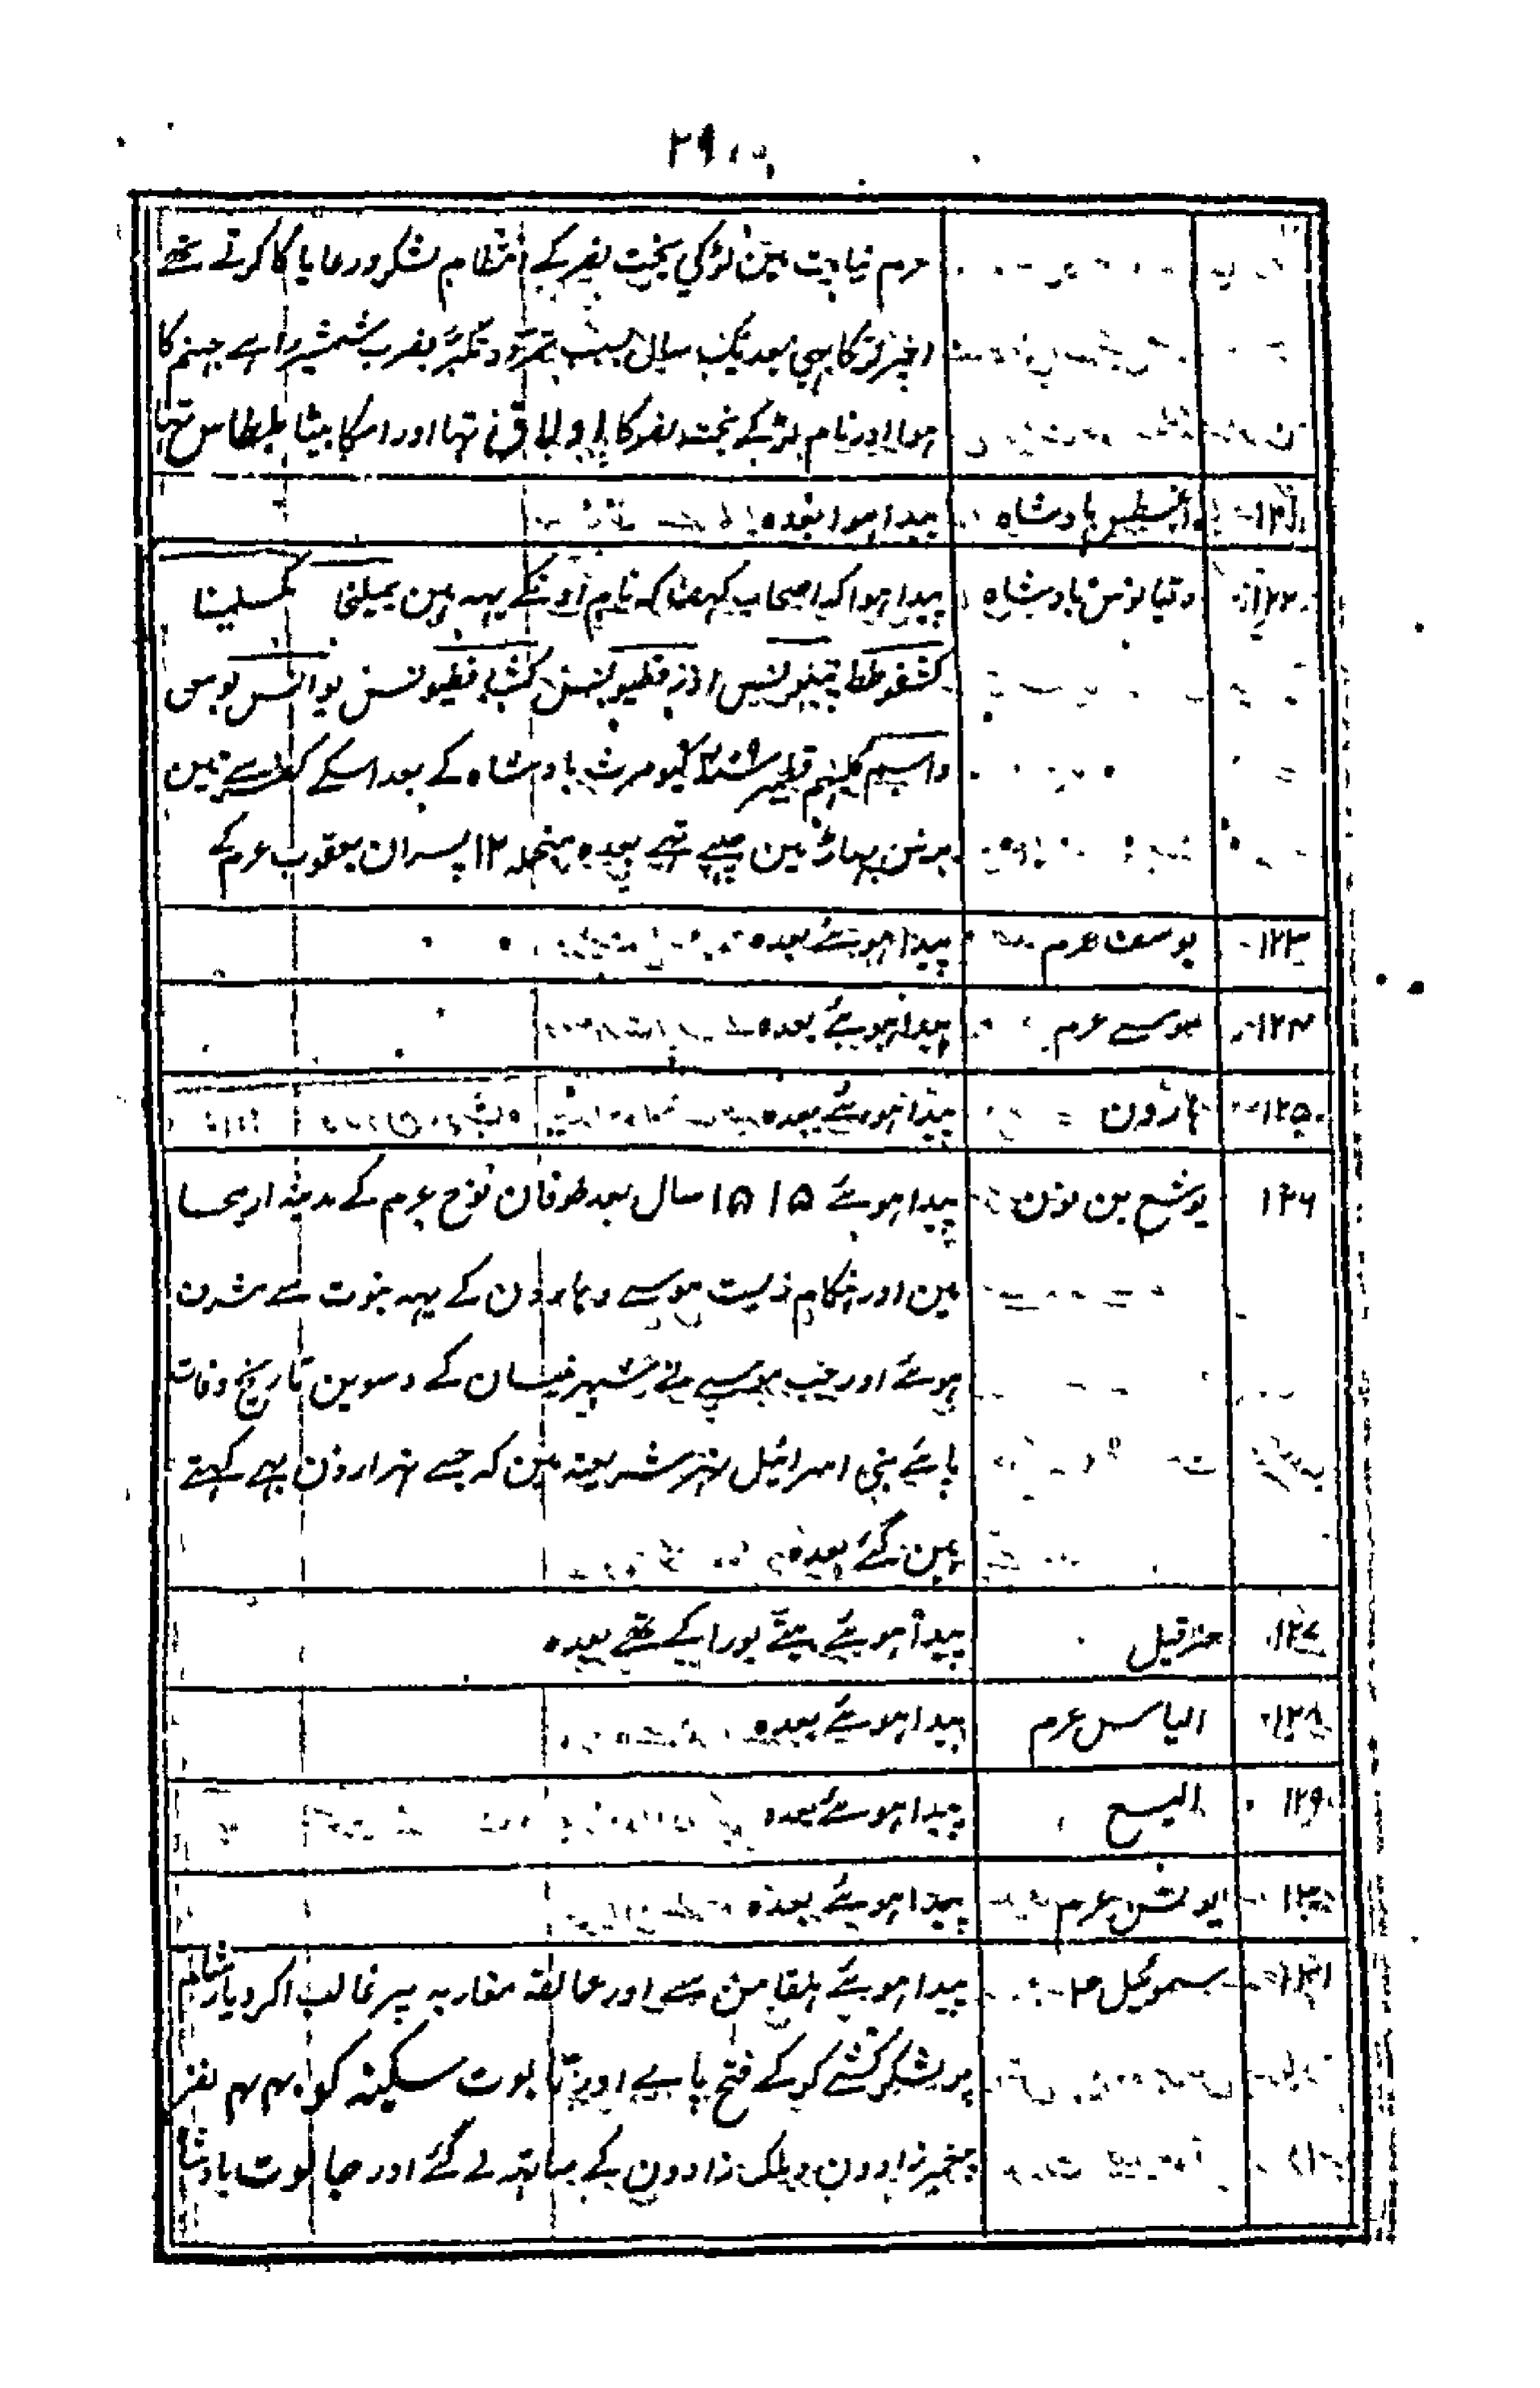 ۲۹
عرم نیابت مین لڑکی بخت نصر کے انتظام لشکر و رعایا کا کرتے تھے
اخیر لڑکا بہی بعد یک سال بسبب تمرد و تکبر بضرب شمشیر راہے جہنم کا
ہوا اور نام لڑکے بخت نصر کا اولاق تہا اور اسکا بیٹا بلطاس تہا
۱۲۱ بادشاہ پیدا ہوا بعدہ
۱۲۲ دقیانوس بادشاہ پیدا ہوا کہ اصحاب کہف کہ نام اونکے یہہ ہین یملیخا مکسلمینا
کشفوطط اذرفطیونس کشافطیونس یوانس بوس
واسم کلبہم قطمیر کیومرث بادشاہ کے بعد اسکے مین
پہاڑ مین چھپے تہے بعدہ منجملہ ۱۲ پسران یعقوب عرم کے
۱۲۳ یوسف عرم پیدا ہوئے بعدہ
۱۲۴ موسے عرم پیدا ہوئے بعدہ
۱۲۵ ہارون پیدا ہوئے بعدہ
۱۲۶ یوشع بن نون پیدا ہوئے ۱۵۱۵ سال بعد طوفان نوح عرم کے مدینہ اریحا
مین اور ہنگام زیست موسے و ہارون کے یہہ نبوت سے مشرف
ہوئے اور جب موسے نے شہر نیسان کے دسوین تاریخ وفات
پائے بنی اسرائیل نہر شریعہ مین کہ جسے نہر اردن بہے کہتے
ہین گئے بعدہ
۱۲۷ حزقیل پیدا ہوئے بیٹے بورا کے تھے بعدہ
۱۲۸ الیاس عرم پیدا ہوئے بعدہ
۱۲۹ الیسع پیدا ہوئے بعدہ
۱۳۰ یونس عرم پیدا ہوئے بعدہ
۱۳۱ سموئیل ع پیدا ہوئے بلقا مین سے اور عمالقہ مغاربہ پیر غالب اکر دیار شام
پر لشکر کشے کر کے فتح پاے اور تابوت سکینہ کو ۴۴۰ نفر
پیغمبر زادون و ملک زادون کے ساتہہ لے گئے اور جالوت بادشا